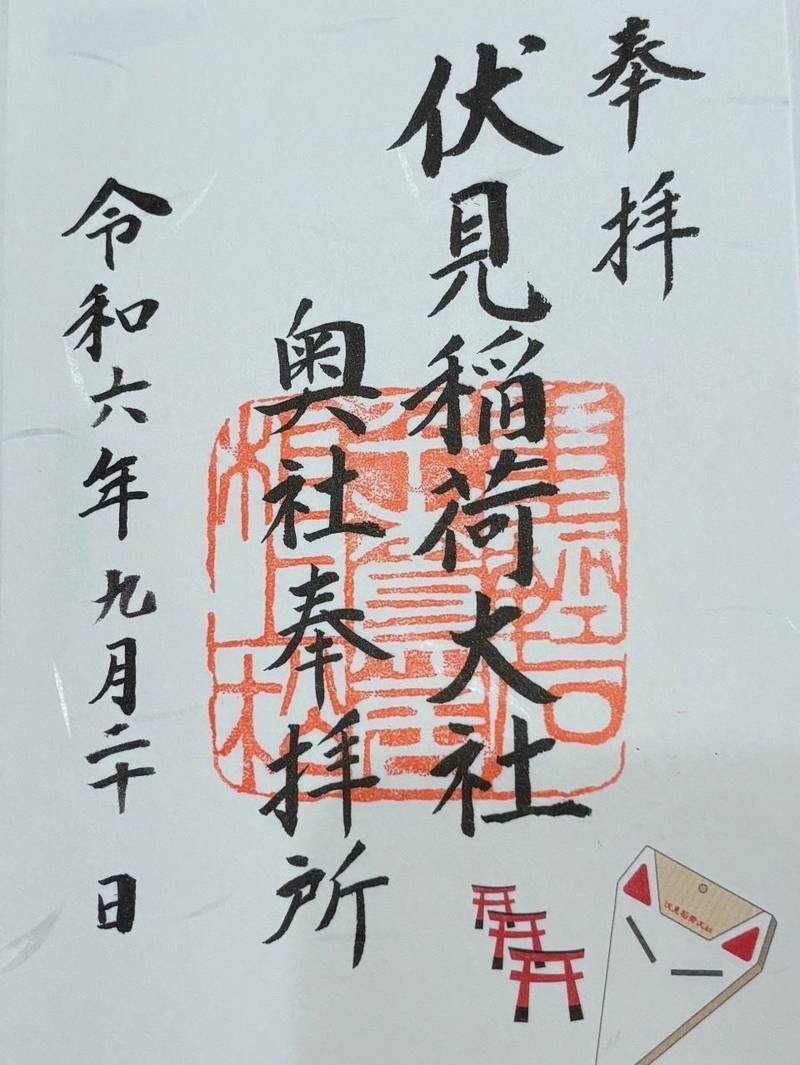 奉拝
伏見稲荷大社
奥社奉拝所
令和六年九月二十日
伏見稲荷大社